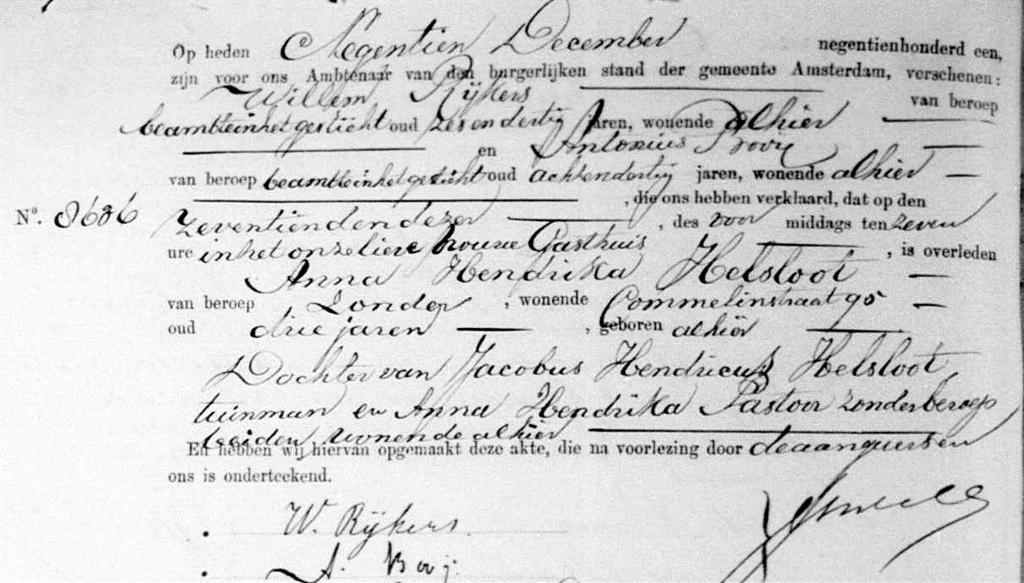 Op heden Negentien December negentienhonderd een,
zijn voor ons Ambtenaar van den burgerlijken stand der gemeente Amsterdam, verschenen:
Willem Rijkers van beroep
beambte in het gesticht oud zes en dertig jaren, wonende alhier
en Antonius
van beroep beambte in het gesticht oud acht en dertig jaren, wonende alhier
No. 8686 zeventienden dezer , die ons hebben verklaard, dat op den
, des voor middags ten zeven
ure in het onze lieve vrouwe Gasthuis , is overleden
Anna Hendrika Helsloot
van beroep zonder , wonende Commelinstraat 90
oud drie jaren , geboren alhier
Dochter van Jacobus Hendricus Helsloot
tuinman en Anna Hendrika Pastoor zonder beroep
beiden wonende alhier
En hebben wij hiervan opgemaakt deze akte, die na voorlezing door de aangevers en
ons is onderteekend.
W. Rijkers
A.